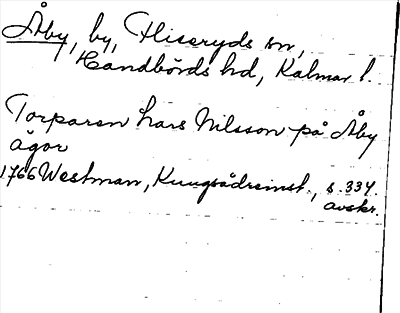 Åby, by, Hiseryds sn,
Handbörds hd, Kalmar l.
Torparen Lars Nilsson på Åby
ägor
1766 Westman, Kungsådreinst., s. 334.
avskr.